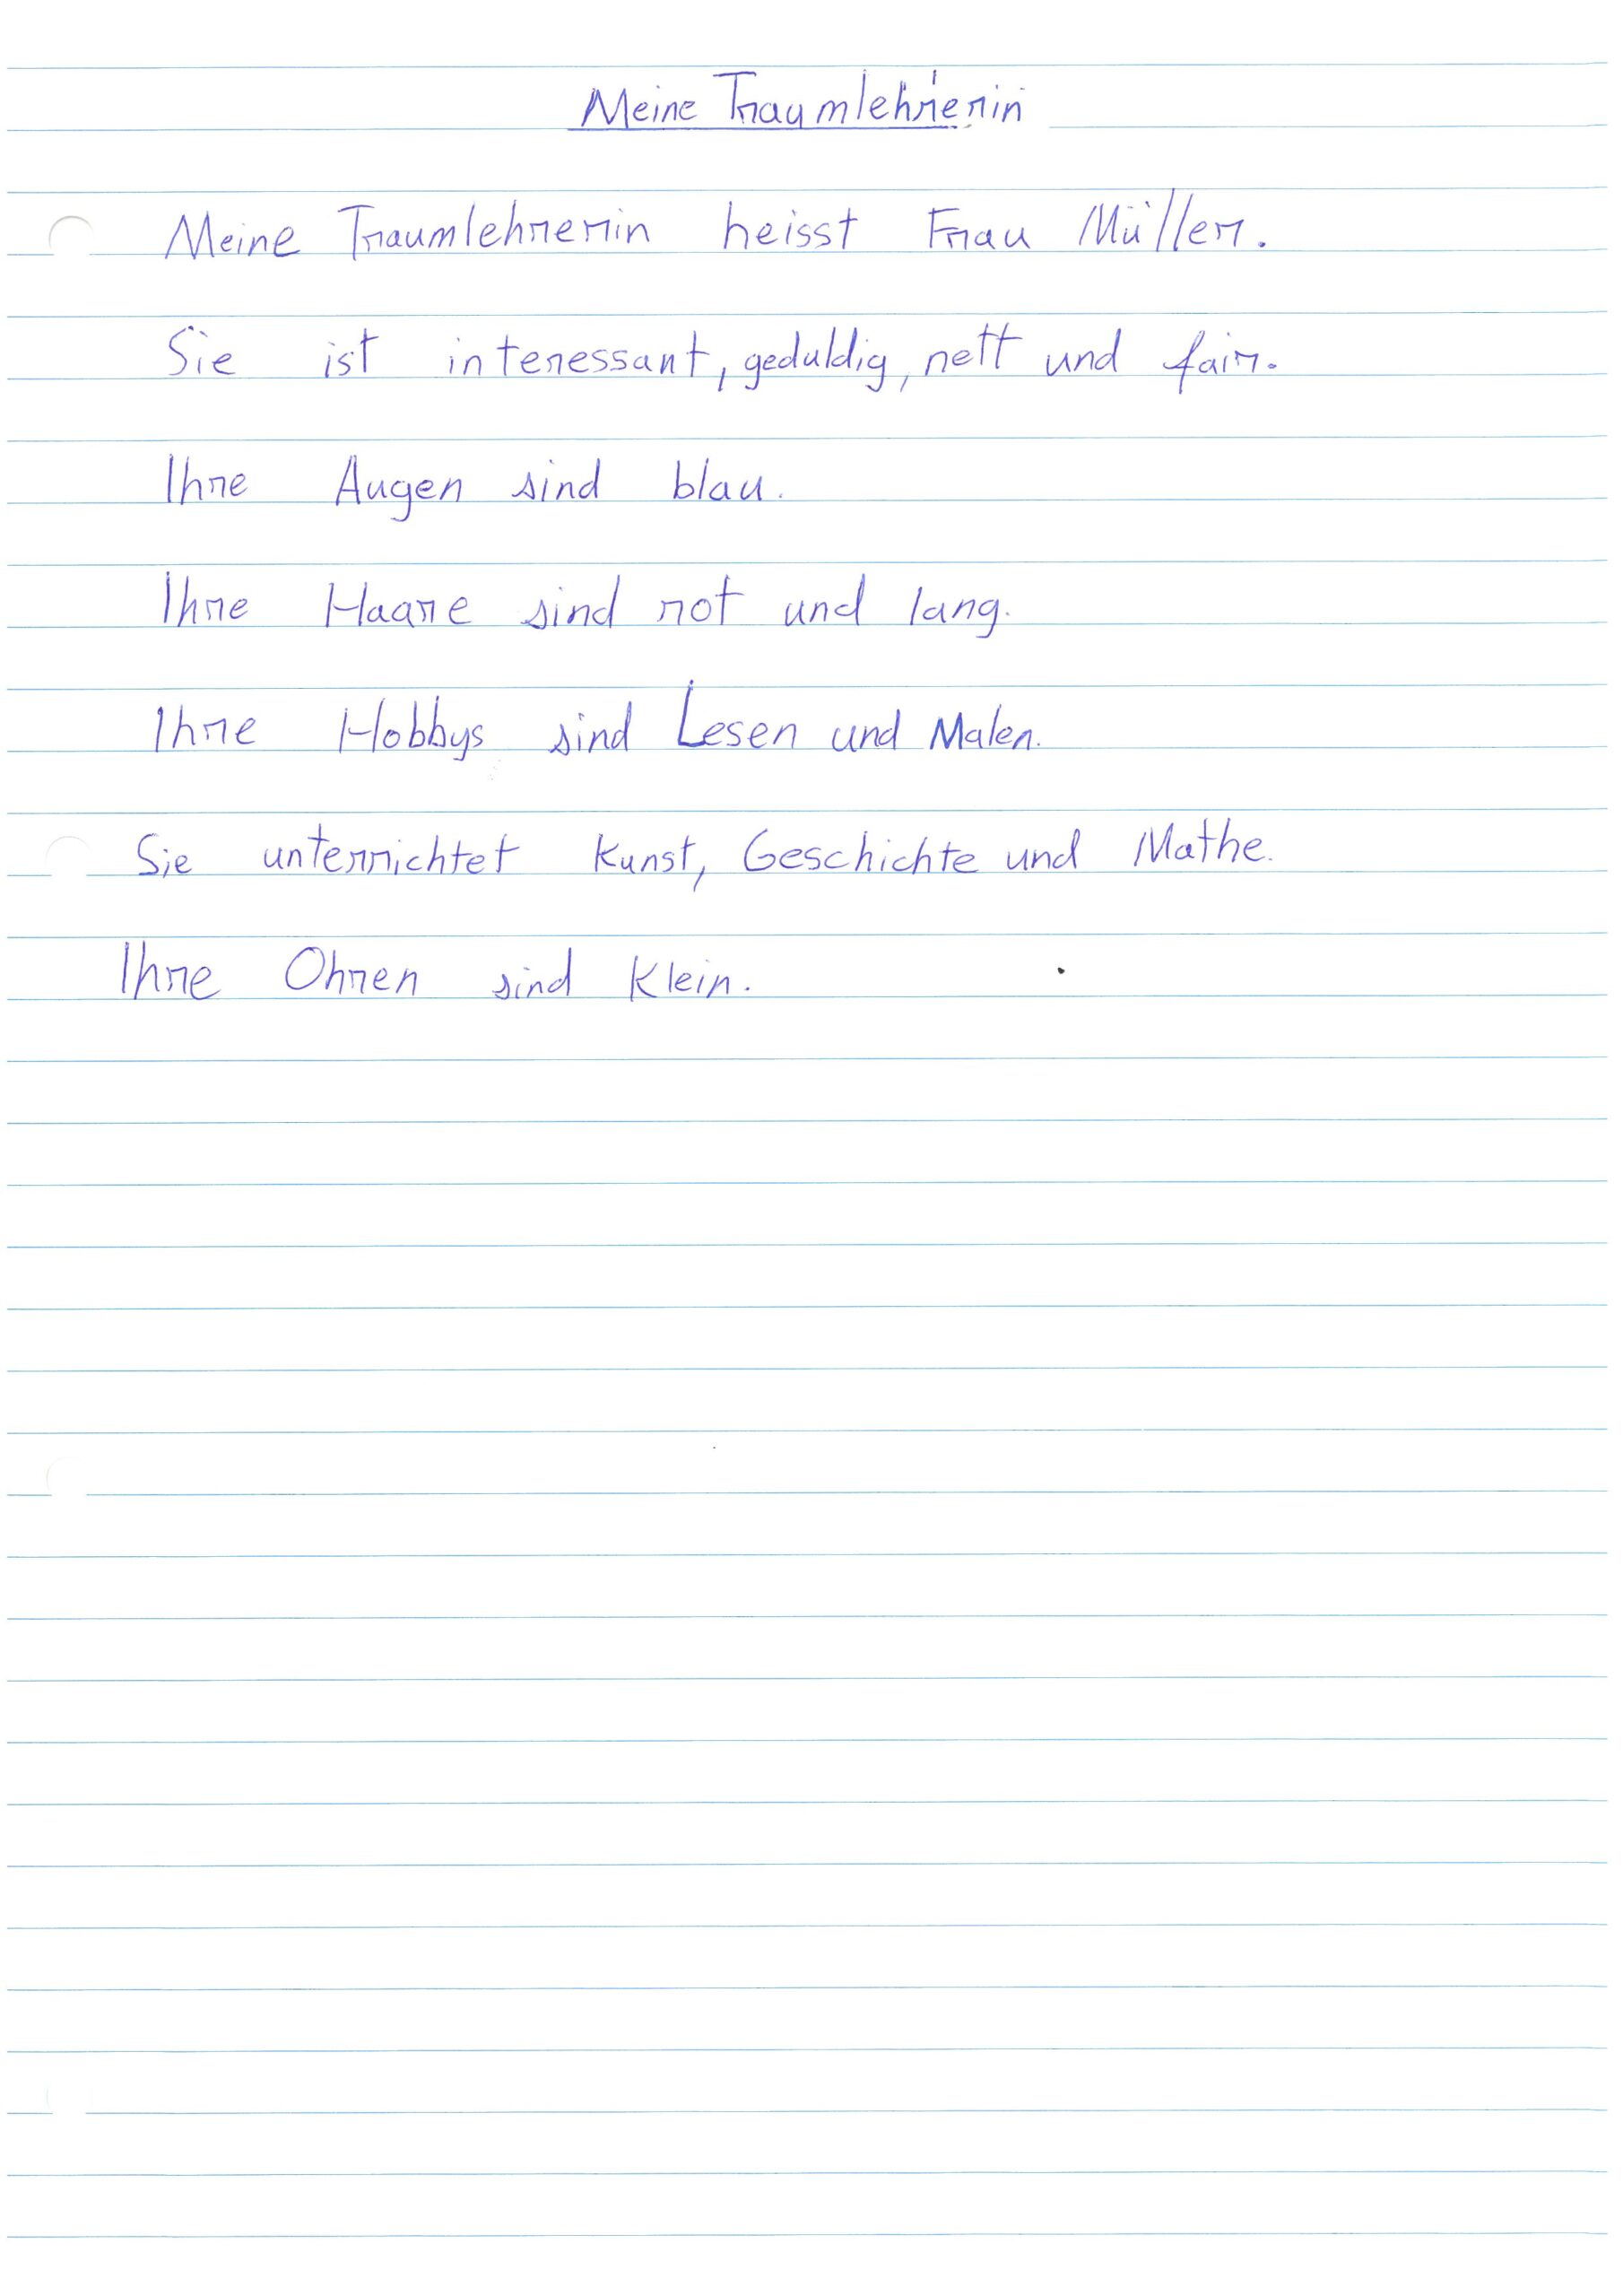 Meine Traumlehrerin
Meine Traumlehrerin heisst Frau Müller.
Sie ist interessant, geduldig, nett und fair.
Ihre Augen sind blau.
Ihre Haare sind rot und lang.
Ihre Hobbys sind Lesen und Malen.
Sie unterrichtet Kunst, Geschichte und Mathe.
Ihre Ohren sind Klein.